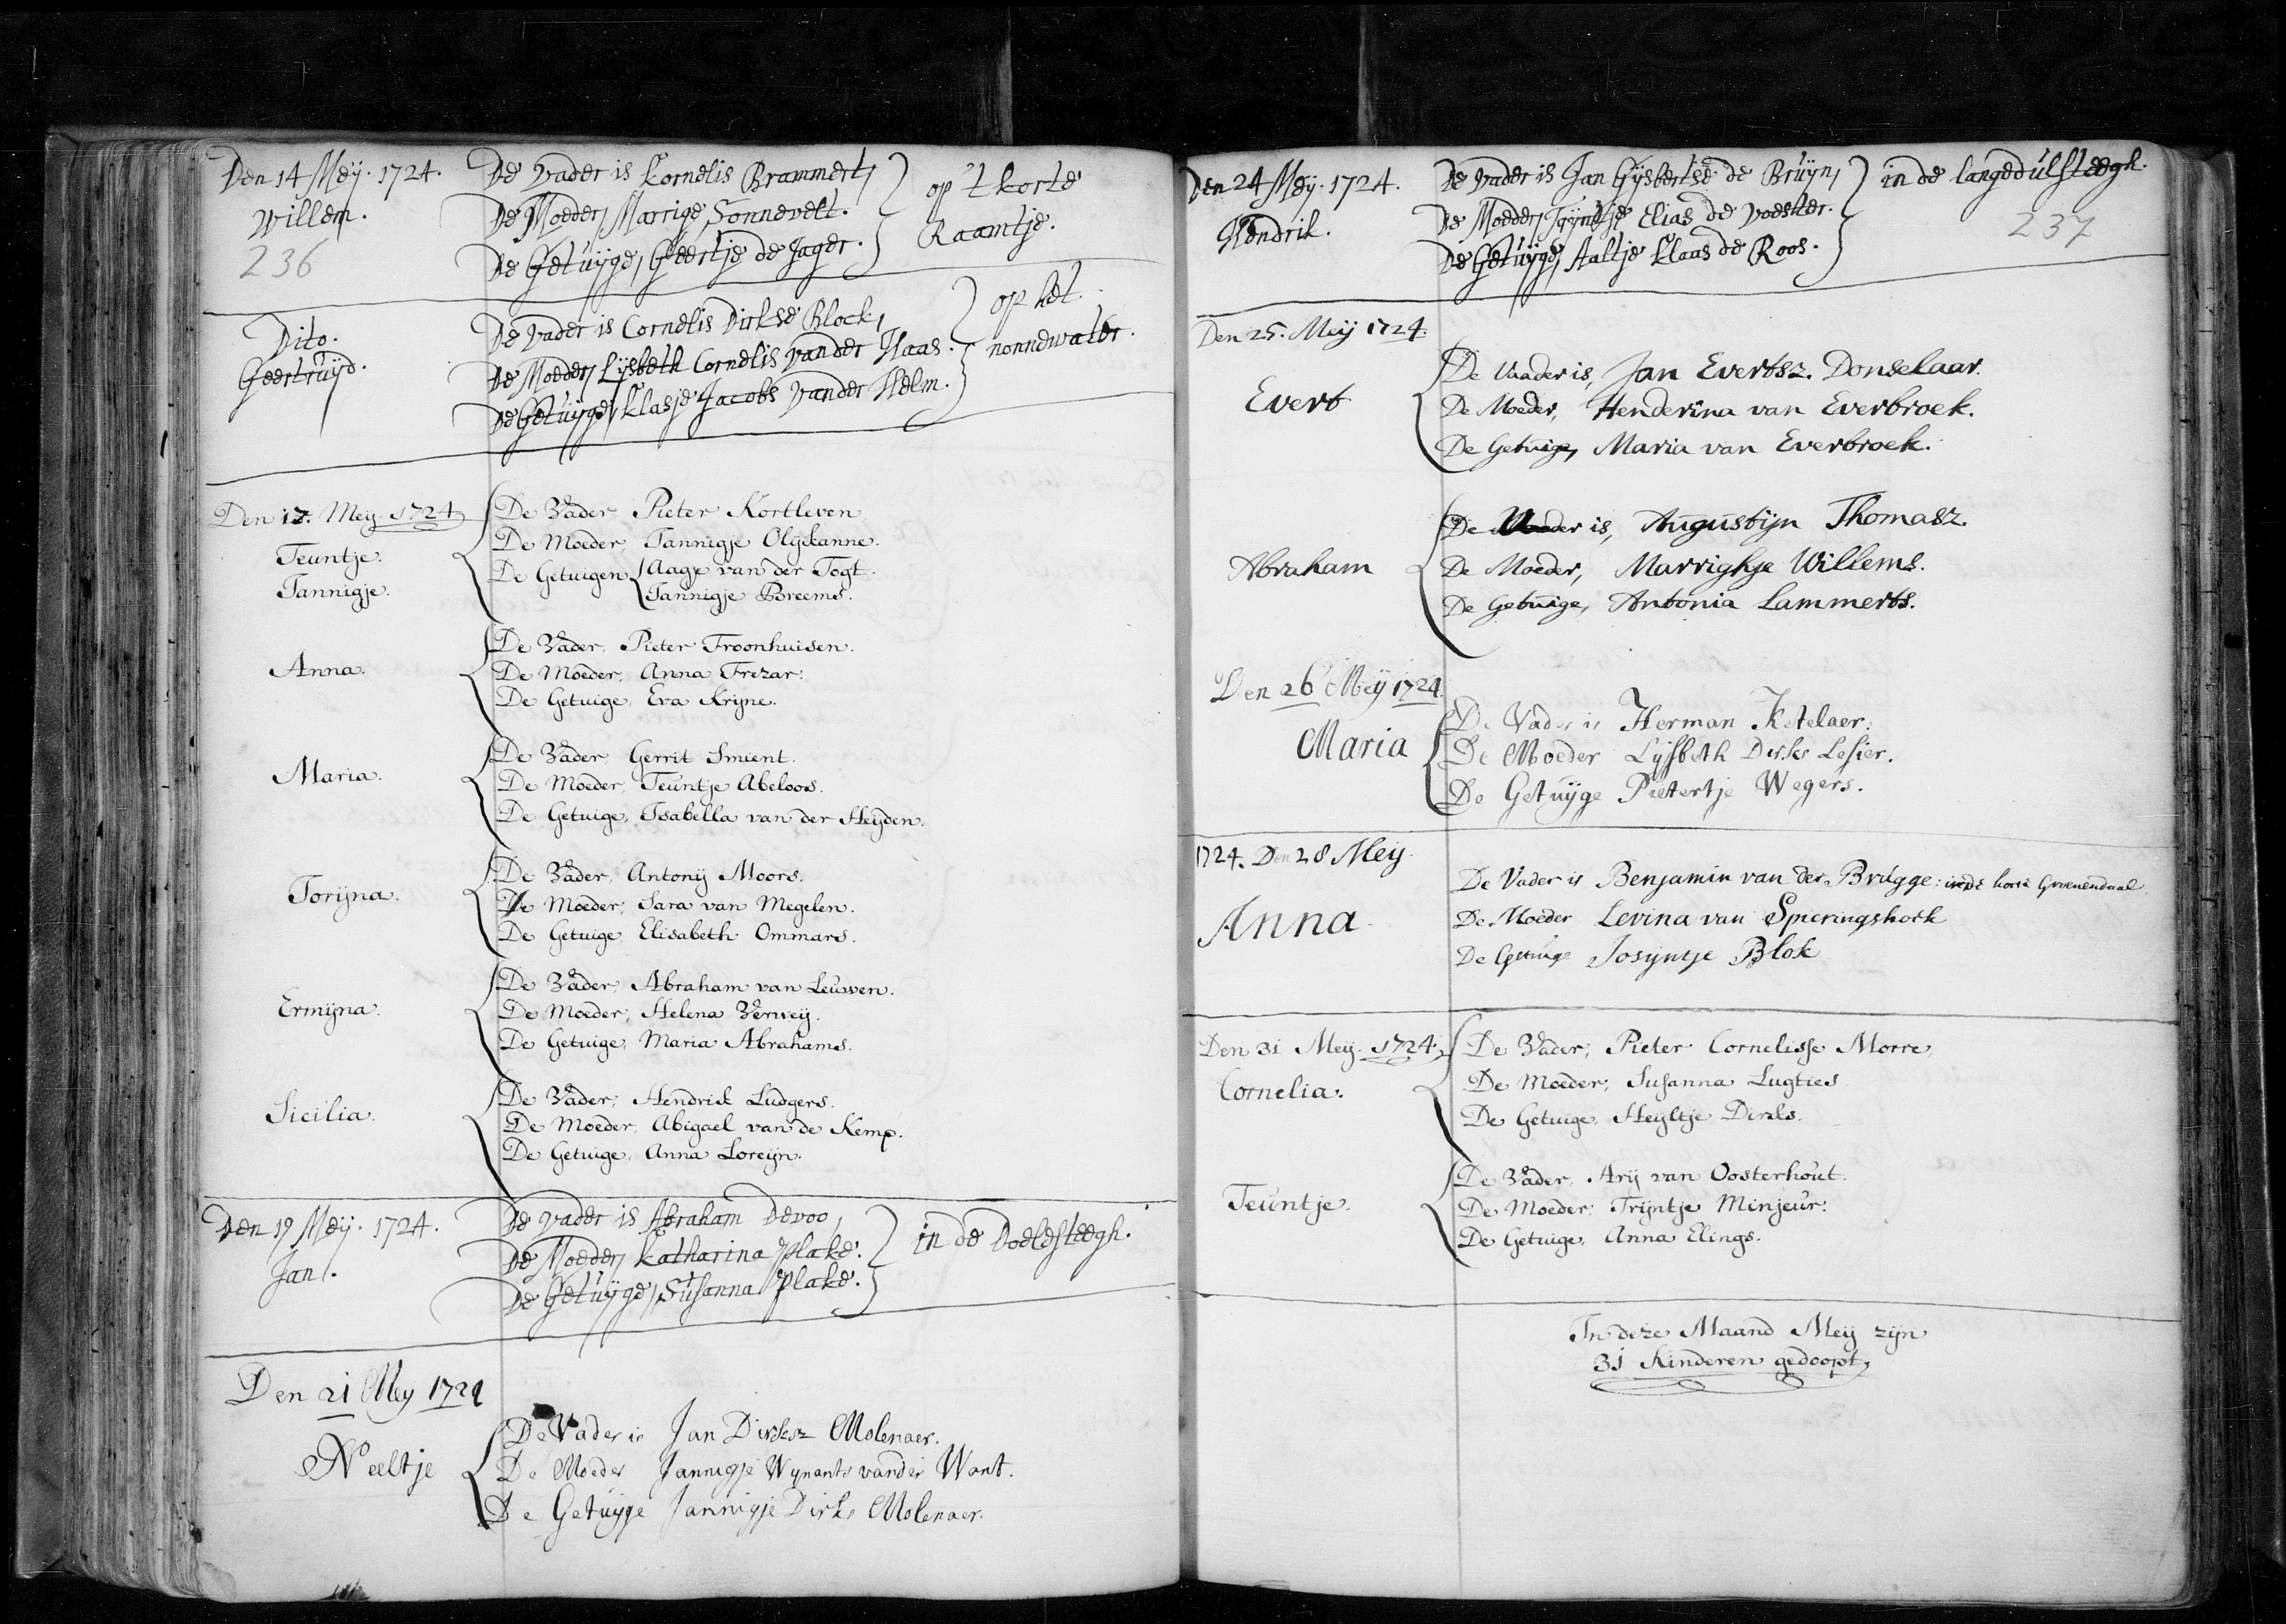 Den 14 Meij. 1724.
Willem.
236
De Vader is Kornelis Brammert,
De Moeder, Marrige, Sonnevelt.
De Getuijge, Geertje de Jager.
op 't korte
Raamtje.
Dito.
Geertruijd.
De Vader is Cornelis Dirkse Block,
De Moeder, Lijsbeth Cornelis van der Haas.
De Getuijge, Klasje Jacobs van der Helm.
op het
nonnewater.
Den 17. Meij. 1724
Teuntje.
Tannigje.
De Vader, Pieter Kortleven
De Moeder, Tannigje Olijkanne.
De Getuigen, Aage van der Togt.
Tannigje Breems.
Anna.
De Vader, Pieter Froonhuisen.
De Moeder, Anna Frezar.
De Getuige, Eva Krijne.
Maria.
De Vader, Gerrit Smient.
De Moeder, Teuntje Abeloos.
De Getuige, Isabella van der Heijden.
Torijna.
De Vader, Antonij Moors.
De Moeder, Sara van Megelen.
De Getuige, Elisabeth Ommars.
Ermijna.
De Vader, Abraham van Leuwen.
De Moeder, Helena Verweij.
De Getuige, Maria Abrahams.
Sicilia.
De Vader, Hendrik Ludgers.
De Moeder, Abigael van de Kemp.
De Getuige, Anna Loreijn.
Den 19 Meij. 1724.
Jan.
De Vader is Abraham Devoo,
De Moeder, Katharina Plake.
De Getuijge, Susanna Plake.
in de Doelesteegh.
Den 21 Meij 1724
Neeltje
De Vader is Jan Dirksz Molenaer.
De Moeder Jannigje Wijnants vander Want.
De Getuijge Jannigje Dirks Molenaer.
Den 24 Meij. 1724.
Hendrik.
De Vader is Jan Gijsbertse de Bruijn,
De Moeder, Trijntje Elias de Voester.
De Getuijge, Aaltje Klaas de Roos.
in de langedulsteegh.
237
Den 25. Meij 1724.
Evert
De Vaader is, Jan Evertsz. Donselaar.
De Moeder, Henderina van Everbroek.
De Getuige, Maria van Everbroek.
Abraham
De Vader is, Augustijn Thomasz.
De Moeder, Marrighje Willems.
De Getuige, Antonia Lammerts.
Den 26 Meij 1724.
Maria
De Vader is Herman Ketelaer.
De Moeder Lijsbeth Dirks Lesier.
De Getuijge Pietertje Wegers.
1724. Den 28 Meij.
Anna.
De Vader is Benjamin van der Brugge: in de korte Groenendaal.
De Moeder Levina van Spieringshoek
De Getuige Josijntje Blok
Den 31 Meij. 1724.
Cornelia.
De Vader, Pieter Cornelisse Morre,
De Moeder, Susanna Lugties
De Getuige, Heijltje Dirks.
Teuntje.
De Vader, Arij van Oosterhout.
De Moeder, Trijntje Minjeur.
De Getuige, Anna Elings.
In deze Maand Meij zijn
31 Kinderen gedoopt,